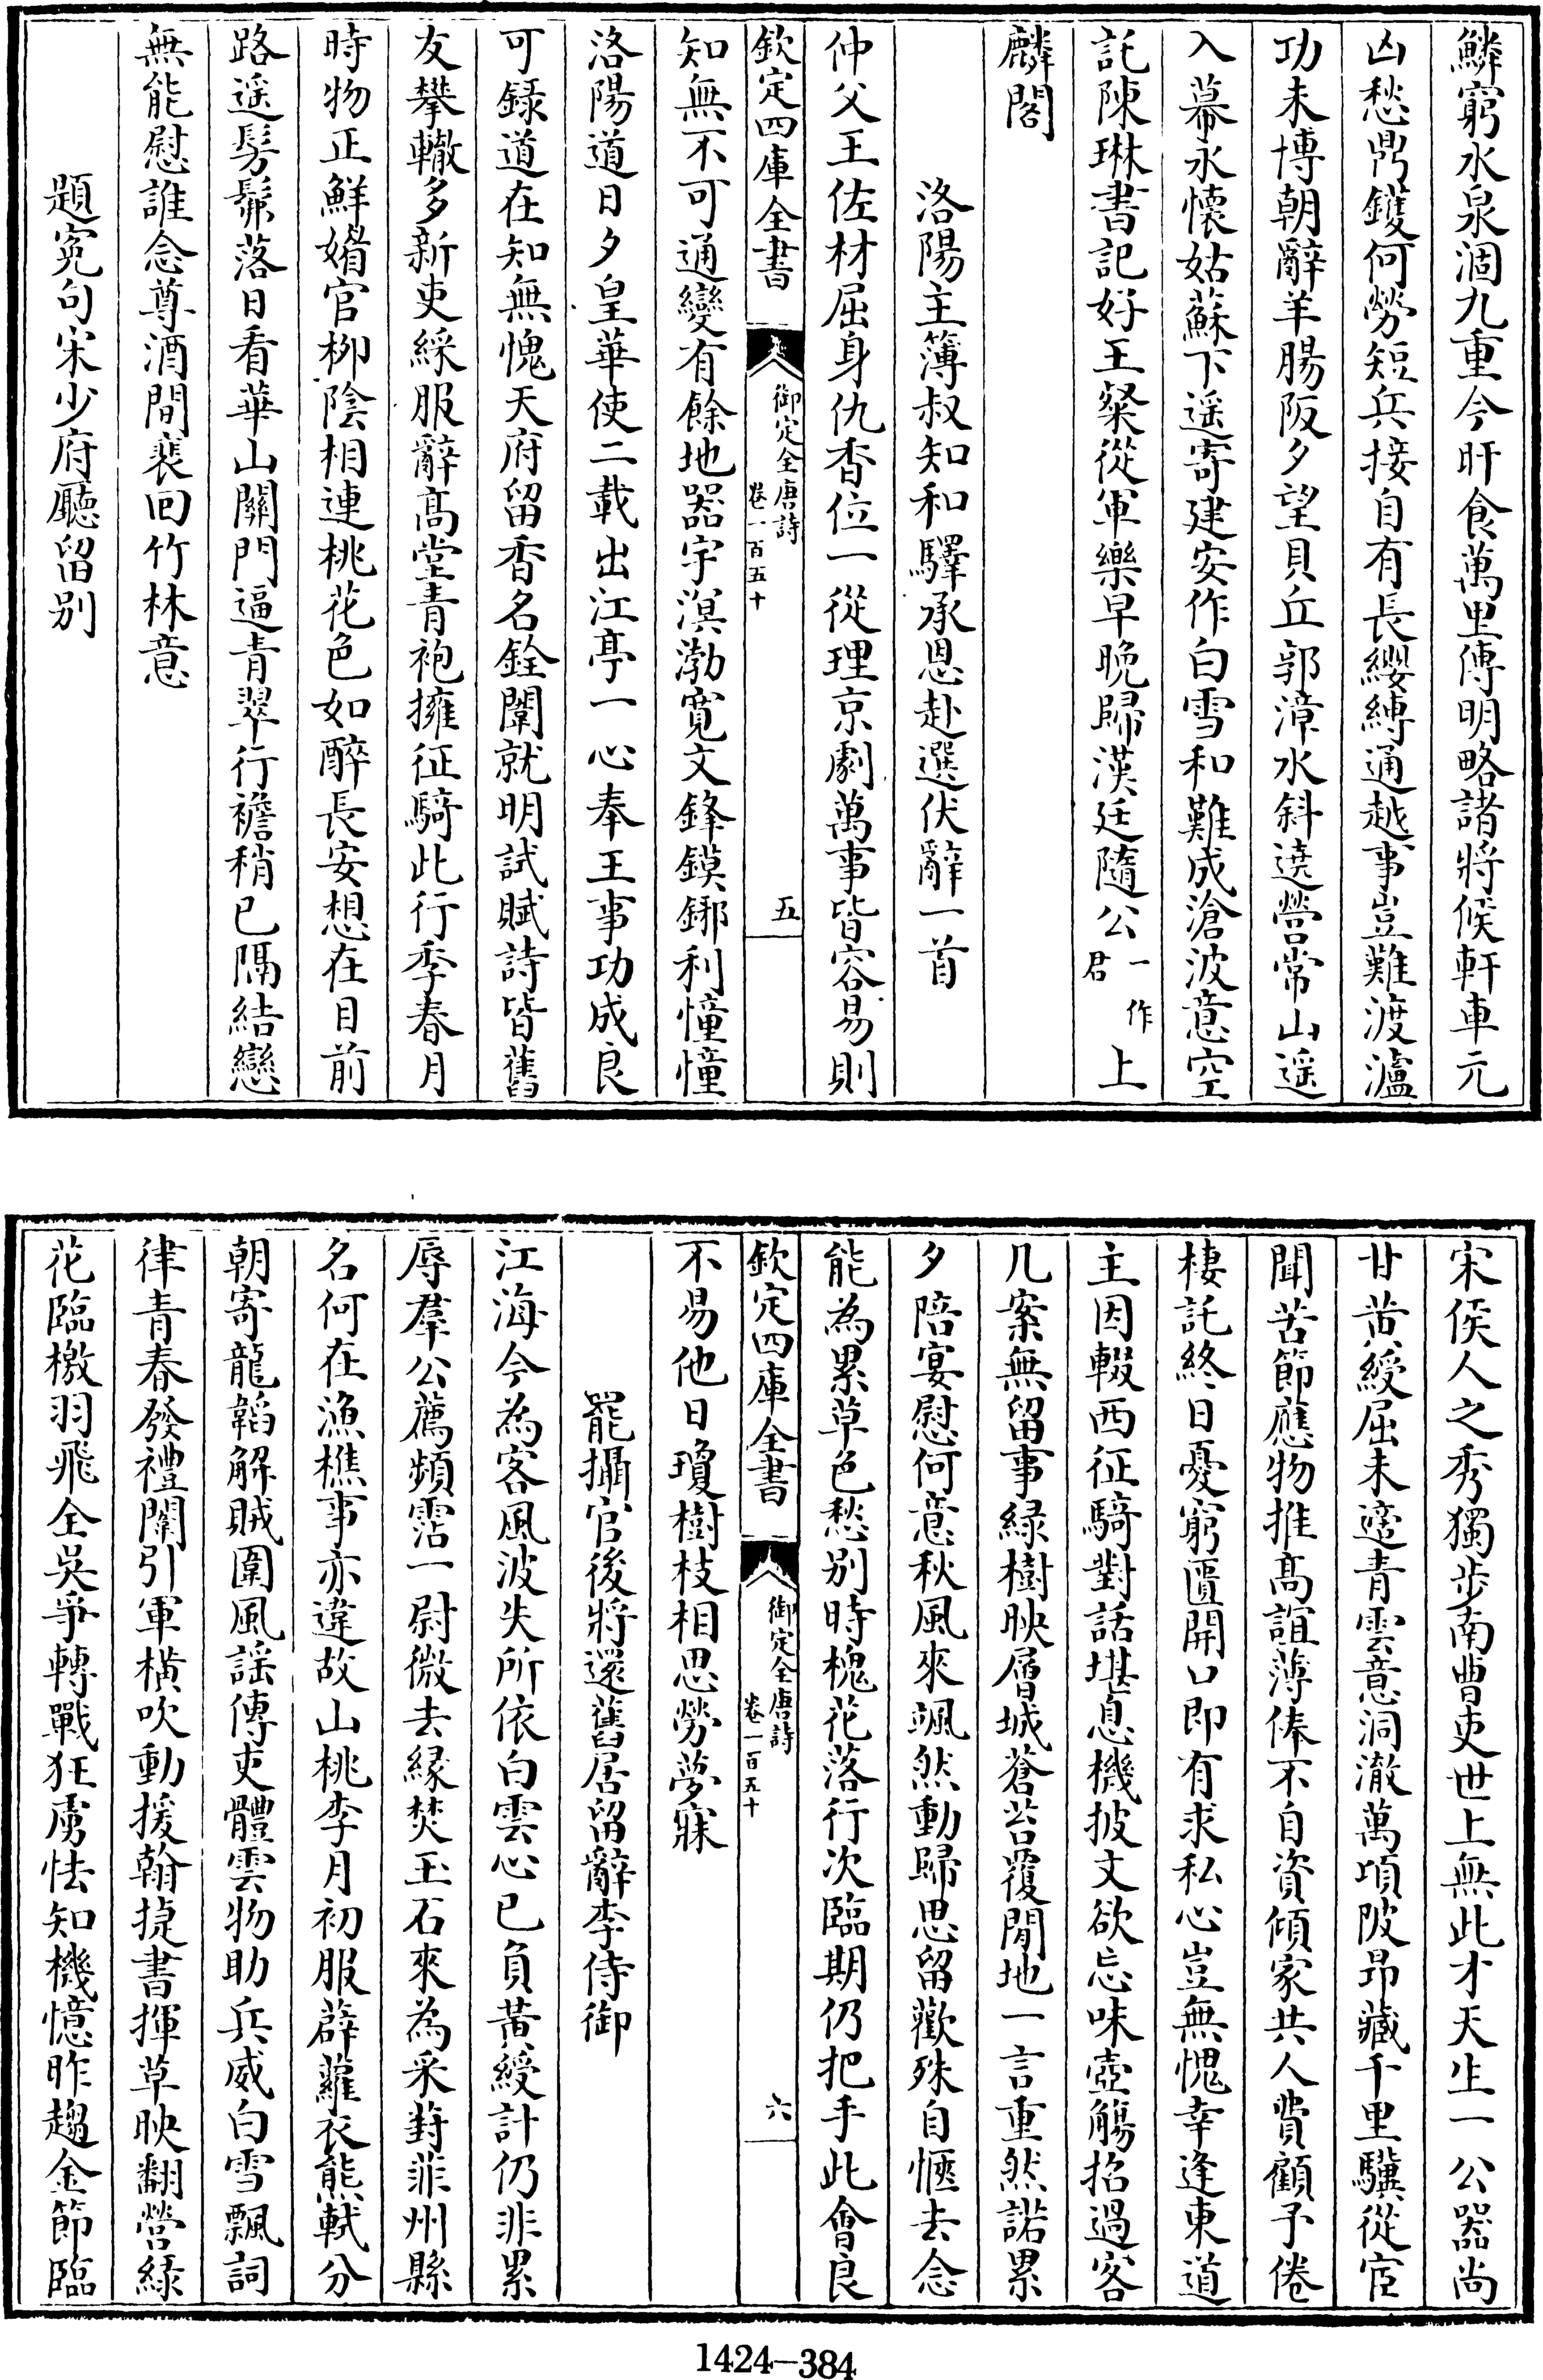 鱗窮水泉涸九重今旰食萬里傳明略諸將候軒車元
凶愁鼎鑊何勞短兵接自有長纓縛通越事豈難渡瀘
功未博朝辭羊腸阪夕望貝丘郭漳水斜遶營常山遥
入幕永懷姑蘇下遥寄建安作白雪和難成滄波意空
託陳琳書記好王粲從軍樂早晚歸漢廷隨公一作君上
麟閣
洛陽主簿叔知和驛承恩赴選伏辭一首
仲父王佐材屈身仇香位一從理京劇萬事皆容易則
欽定四庫全書
御定全唐詩
卷一百五十
五
知無不可通變有餘地器宇溟渤寛文鋒鏌鋣利憧憧
洛陽道日夕皇華使二載出江亭一心奉王事功成良
可録道在知無愧天府留香名銓闈就明試賦詩皆舊
友攀轍多新吏綵服辭髙堂青袍擁征騎此行季春月
時物正鮮媚官栁陰相連桃花色如醉長安想在目前
路遥髣髴落日看華山關門逼青翠行襜稍已隔結戀
無能慰誰念尊酒間裵回竹林意
題寃句宋少府廳留别
宋侯人之秀獨歩南曹吏世上無此才天生一公器尚
甘黄綬屈未遑青雲意洞澈萬頃陂昂藏千里驥從宦
聞苦節應物推髙誼薄俸不自資傾家共人費顧予倦
棲託終日憂窮匱開口即有求私心豈無愧幸逢東道
主因輟西征騎對話堪息機披文欲忘味壺觴招過客
几案無留事緑樹映層城蒼苔覆閒地一言重然諾累
夕陪宴慰何意秋風來颯然動歸思留歡殊自愜去念
能為累草色愁别時槐花落行次臨期仍把手此會良
欽定四庫全書
御定全唐詩
卷一百五十
六
不易他日瓊樹枝相思勞夢寐
罷攝官後將還舊居留辭李侍御
江海今為客風波失所依白雲心已負黄綬計仍非累
辱羣公薦頻霑一尉微去縁焚玉石來為采葑菲州縣
名何在漁樵事亦違故山桃李月初服薜蘿衣熊軾分
朝寄龍韜解賊圍風謡傳吏體雲物助兵威白雪飄詞
律青春發禮闈引軍横吹動援翰捷書揮草映翻營緑
花臨檄羽飛全吳爭轉戰狂虜怯知機憶昨趨金節臨
1424-384